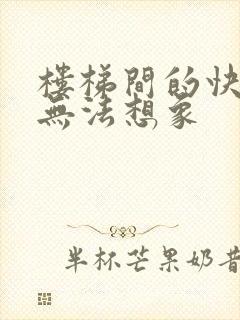 樓梯間的快
無法想象
半杯芒果奶昔